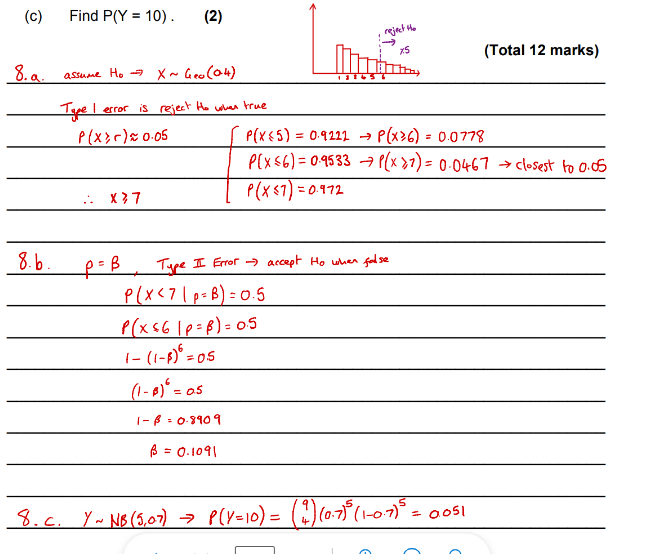 (c) Find P(Y = 10). (2)
reject H₀
x5
1 2 3 4 5 6
(Total 12 marks)
8.a. assume H₀ → X ~ Geo(0.4)
Type I error is reject H₀ when true
P(X ⩾ r) ≈ 0.05
P(X ⩽ 5) = 0.9222 → P(X ⩾ 6) = 0.0778
P(X ⩽ 6) = 0.9533 → P(X ⩾ 7) = 0.0467 → closest to 0.05
P(X ⩽ 7) = 0.972
∴ X ⩾ 7
8.b. p = β, Type II Error → accept H₀ when false
P(X < 7 | p = β) = 0.5
P(X ⩽ 6 | p = β) = 0.5
1 - (1-β)⁶ = 0.5
(1-β)⁶ = 0.5
1 - β = 0.8909
β = 0.1091
8.c. Y ~ NB(5,0.7) → P(Y=10) = (9 4)(0.7)⁵(1-0.7)⁵ = 0.051